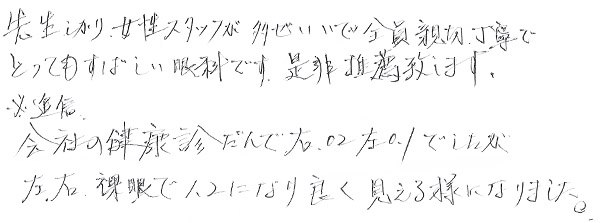 先生しかり、女性スタッフが 全員親切、丁寧で
とってもすばしい眼科です。是非推薦致します。
※追信
会社の健康診だんで右.02 左0.1でしたが
左、右、裸眼で1.2になり良く見える様になりました。